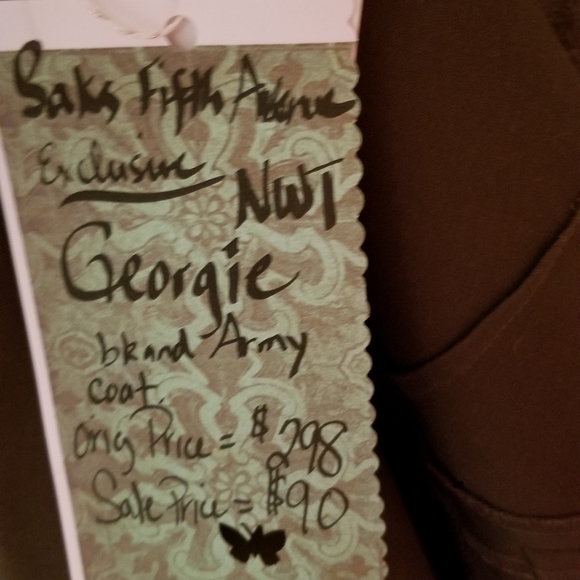 Saks Fifth Avenue
Exclusive
NWT
Georgie
brand Army
coat.
Orig Price = $298
Sale Price = $90